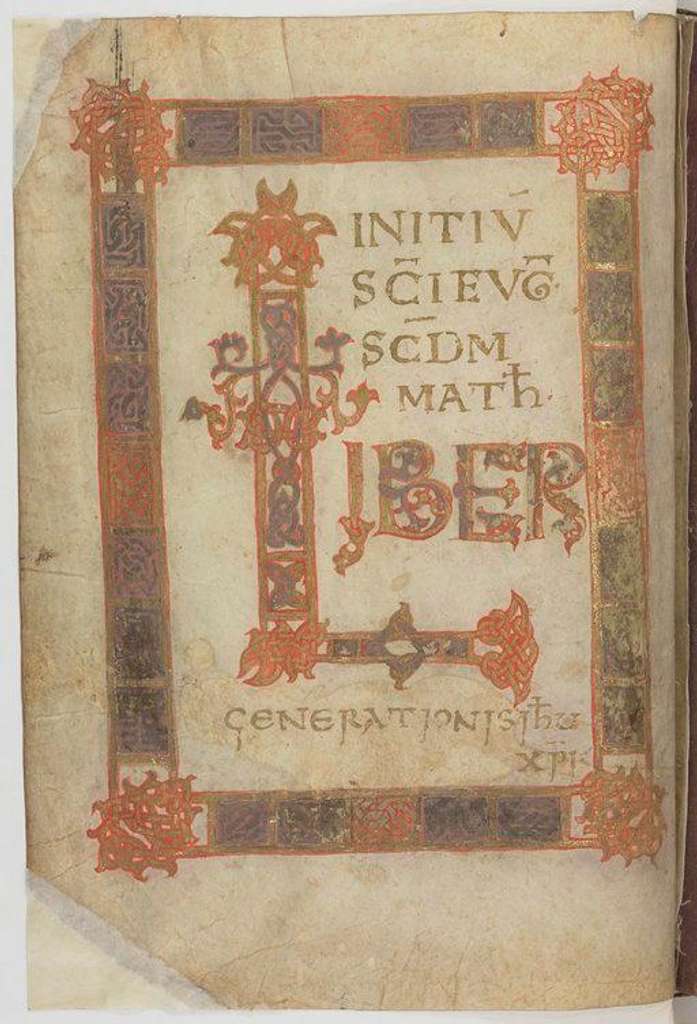 INITIV̄
SC̄I EVḠ
SC̄DM
MATħ·
LIBER
GENERATIONIS iħu
XP̄I